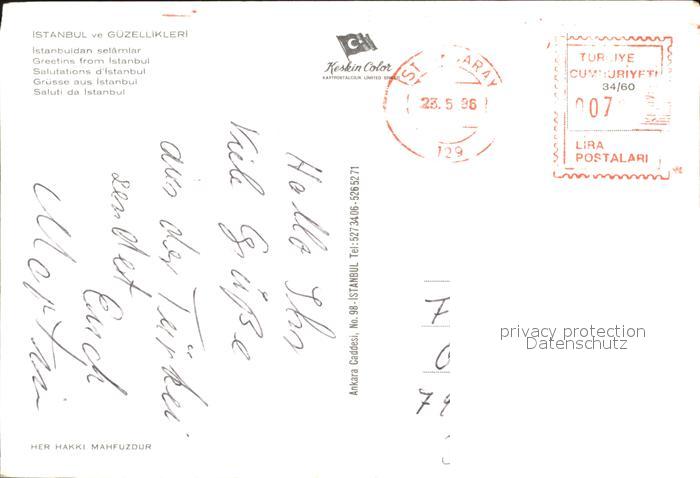 İSTANBUL ve GÜZELLİKLERİ
İstanbuldan selâmlar
Greetins from İstanbul
Salutations d'İstanbul
Grüsse aus İstanbul
Saluti da İstanbul
Keskin Color
KARTPOSTALCILIK LIMITED
23.5.96
129
TÜRKİYE
CUMHURİYETİ
34/60
007
LİRA
POSTALARI
Hallo Ihr
Viele Grüße
aus der Türkei
sendet Euch
Martina
Ankara Caddesi, No. 98-İSTANBUL Tel: 5273406-5265271
7
79
privacy protection
Datenschutz
HER HAKKI MAHFUZDUR